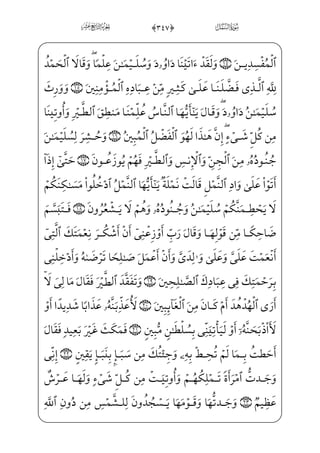 سُورَةُ النَّمْلِ ﴿٣٤٧﴾ الجُزْءُ التَّاسِعَ عَشَرَ
ٱلْمُفْسِدِينَ ۝١٤ وَلَقَدْ ءَاتَيْنَا دَاوُۥدَ وَسُلَيْمَـٰنَ عِلْمًا ۖ وَقَالَا ٱلْحَمْدُ
لِلَّهِ ٱلَّذِى فَضَّلَنَا عَلَىٰ كَثِيرٍ مِّنْ عِبَادِهِ ٱلْمُؤْمِنِينَ ۝١٥ وَوَرِثَ
سُلَيْمَـٰنُ دَاوُۥدَ ۖ وَقَالَ يَـٰٓأَيُّهَا ٱلنَّاسُ عُلِّمْنَا مَنطِقَ ٱلطَّيْرِ وَأُوتِينَا
مِن كُلِّ شَىْءٍ ۖ إِنَّ هَـٰذَا لَهُوَ ٱلْفَضْلُ ٱلْمُبِينُ ۝١٦ وَحُشِرَ لِسُلَيْمَـٰنَ
جُنُودُهُۥ مِنَ ٱلْجِنِّ وَٱلْإِنسِ وَٱلطَّيْرِ فَهُمْ يُوزَعُونَ ۝١٧ حَتَّىٰٓ إِذَآ
أَتَوْا۟ عَلَىٰ وَادِ ٱلنَّمْلِ قَالَتْ نَمْلَةٌ يَـٰٓأَيُّهَا ٱلنَّمْلُ ٱدْخُلُوا۟ مَسَـٰكِنَكُمْ
لَا يَحْطِمَنَّكُمْ سُلَيْمَـٰنُ وَجُنُودُهُۥ وَهُمْ لَا يَشْعُرُونَ ۝١٨ فَتَبَسَّمَ
ضَاحِكًا مِّن قَوْلِهَا وَقَالَ رَبِّ أَوْزِعْنِىٓ أَنْ أَشْكُرَ نِعْمَتَكَ ٱلَّتِىٓ
أَنْعَمْتَ عَلَىَّ وَعَلَىٰ وَٰلِدَىَّ وَأَنْ أَعْمَلَ صَـٰلِحًا تَرْضَىٰهُ وَأَدْخِلْنِى
بِرَحْمَتِكَ فِى عِبَادِكَ ٱلصَّـٰلِحِينَ ۝١٩ وَتَفَقَّدَ ٱلطَّيْرَ فَقَالَ مَا لِىَ لَآ
أَرَى ٱلْهُدْهُدَ أَمْ كَانَ مِنَ ٱلْغَآئِبِينَ ۝٢٠ لَأُعَذِّبَنَّهُۥ عَذَابًا شَدِيدًا أَوْ
لَأَا۟ذْبَحَنَّهُۥٓ أَوْ لَيَأْتِيَنِّى بِسُلْطَـٰنٍ مُّبِينٍ ۝٢١ فَمَكَثَ غَيْرَ بَعِيدٍ فَقَالَ
أَحَطتُ بِمَا لَمْ تُحِطْ بِهِۦ وَجِئْتُكَ مِن سَبَإٍۭ بِنَبَإٍ يَقِينٍ ۝٢٢ إِنِّى
وَجَدتُّ ٱمْرَأَةً تَمْلِكُهُمْ وَأُوتِيَتْ مِن كُلِّ شَىْءٍ وَلَهَا عَرْشٌ
عَظِيمٌ ۝٢٣ وَجَدتُّهَا وَقَوْمَهَا يَسْجُدُونَ لِلشَّمْسِ مِن دُونِ ٱللَّهِ